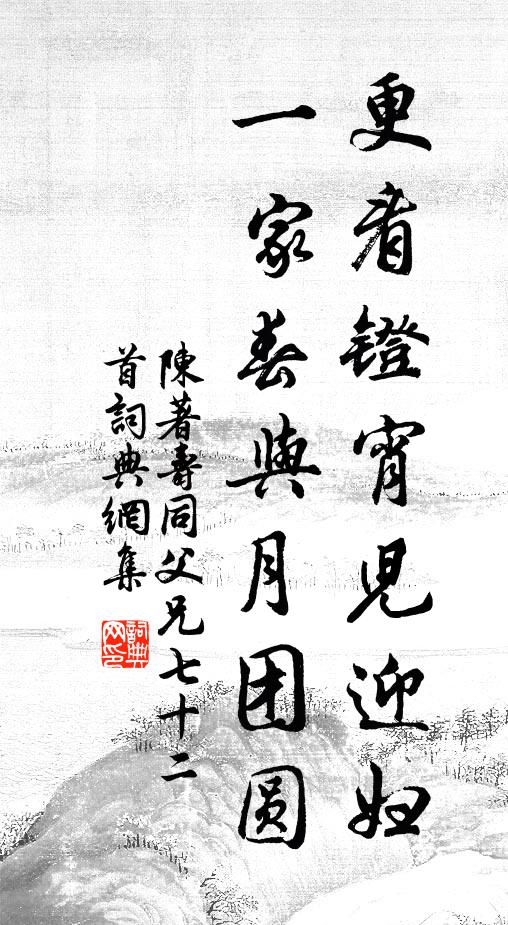 更看鐙宵児迎妇
一家春與月团圆
陳著壽同父兄七十二
首詞典網集
詞典网印